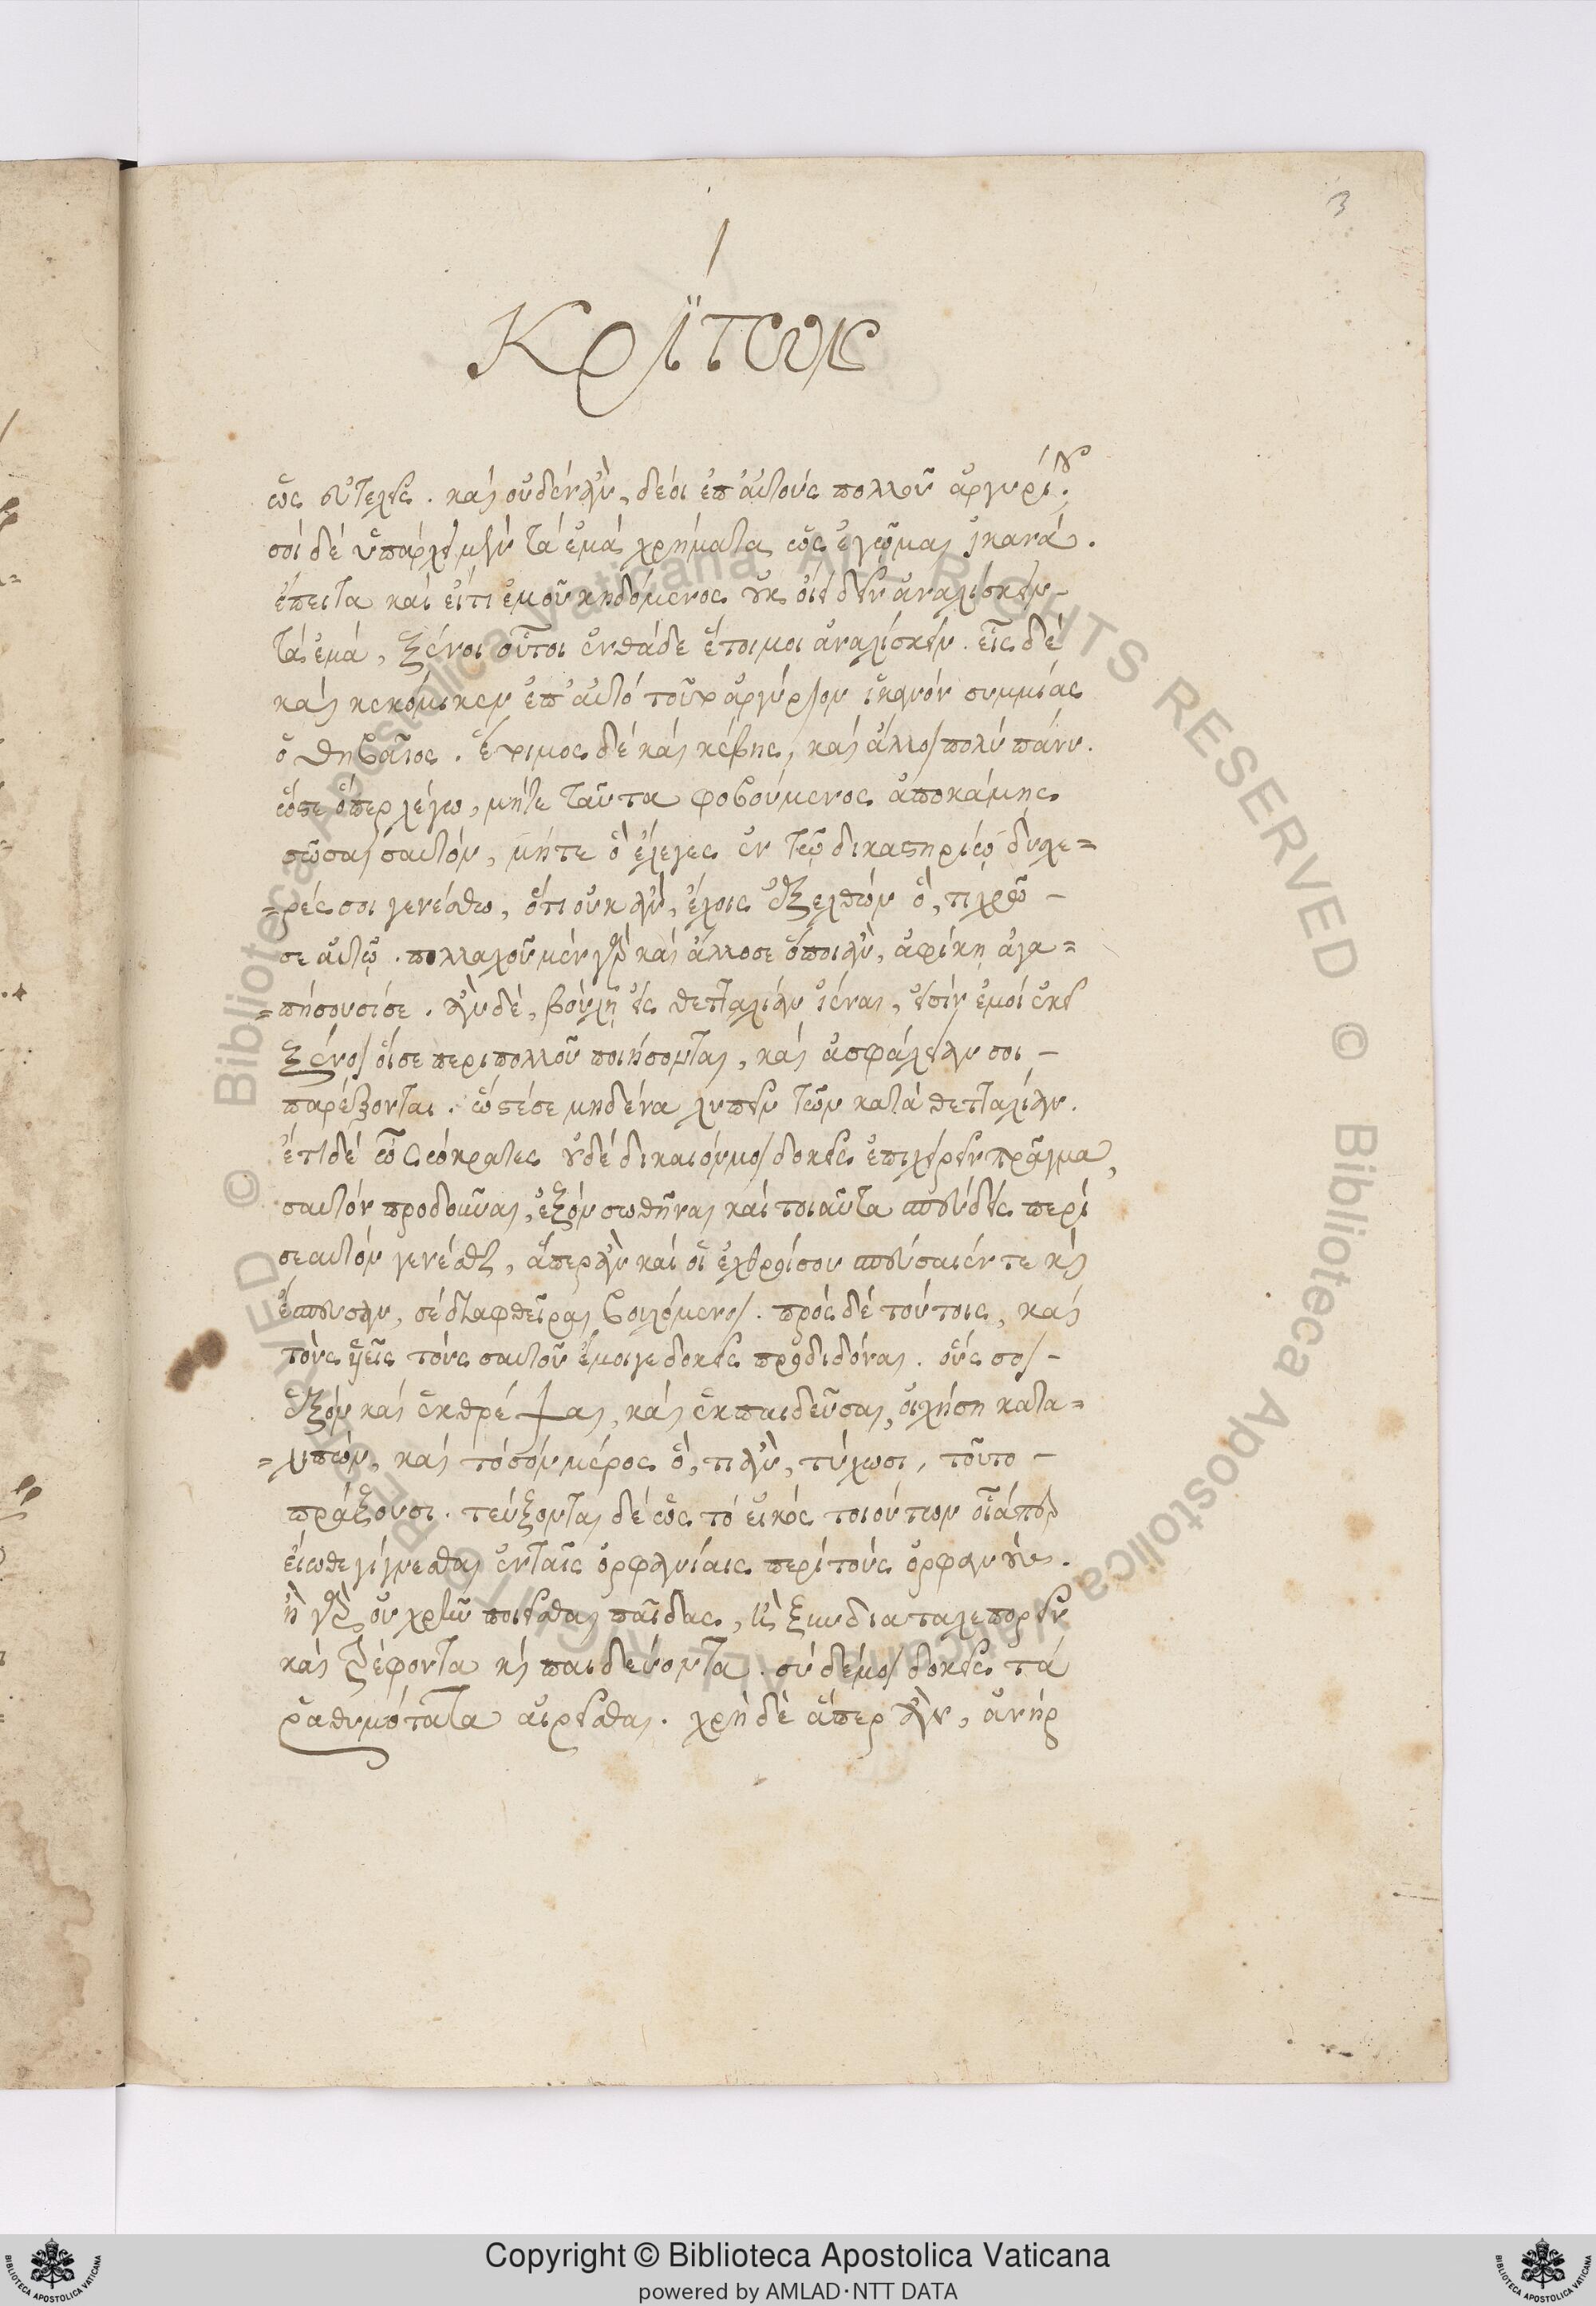 3
Κρίτων
ὡς εὐτελεῖς. καὶ οὐδὲν ἂν, δέοι ἐπ' αὐτοὺς πολλοῦ ἀργυρίου.
σοὶ δὲ ὑπάρχει μὲν τὰ ἐμὰ χρήματα ὡς ἐγᾦμαι ἱκανά.
ἔπειτα καὶ εἴ τι ἐμοῦ κηδόμενος οὐκ οἴει δεῖν ἀναλίσκειν
τὰ ἐμά, ξένοι οὗτοι ἐνθάδε ἕτοιμοι ἀναλίσκειν. εἷς δὲ
καὶ κεκόμικεν ἐπ' αὐτὸ τοῦτο ἀργύριον ἱκανὸν συμμίας
ὁ θηβαῖος. ἕτοιμος δὲ καὶ κέβης, καὶ ἄλλοι πολὺ πάνυ.
ὥστε ὅπερ λέγω, μήτε ταῦτα φοβούμενος ἀποκάμης
σῶσαι σαυτόν, μήτε ὃ ἔλεγες ἐν τῷ δικαστηρίῳ δυχε=
=ρές σοι γενέσθω, ὅτι οὐκ ἂν, ἔχοις ἐξελθὼν ὅ, τι χρῷ –
σε αὐτῷ. πολλαχοῦ μὲν γὰρ καὶ ἄλλοσε ὅποι ἂν, ἀφίκη ἀγα=
=πήσουσί σε. ἂν δὲ, βούλῃ εἰς θετταλίαν ἰέναι, εἰσὶν ἐμοὶ ἐκεῖ
ξένοι οἵ σε περὶ πολλοῦ ποιήσονται, καὶ ἀσφάλειαν σοι –
παρέξονται. ὥστε σε μηδένα λυπεῖν τῶν κατὰ θετταλίαν.
ἔτι δὲ ὦ Σώκρατες οὐδὲ δίκαιόν μοι δοκεῖς ἐπιχειρεῖν πρᾶγμα,
σαυτὸν προδοῦναι, ἐξὸν σωθῆναι καὶ τοιαῦτα σπεύδεις περὶ
σεαυτὸν γενέσθαι, ἅπερ ἂν καὶ οἱ ἐχθροί σου σπεύσαιέν τε καὶ
ἔσπευσαν, σὲ διαφθεῖραι βουλόμενοι. πρὸς δὲ τούτοις, καὶ
τοὺς υἱεῖς τοὺς σαυτοῦ ἔμοιγε δοκεῖς προδιδόναι. οὕς σοι –
ἐξὸν καὶ ἐκθρέψαι, καὶ ἐκπαιδεῦσαι, οἰχήση κατα=
=λιπών, καὶ τὸ σὸν μέρος ὅ, τι ἂν, τύχωσι, τοῦτο –
πράξουσι. τεύξονται δὲ ὡς τὸ εἰκὸς τοιούτων οἷάπερ
εἴωθε γίγνεσθαι ἐν ταῖς ὀρφανίαις περὶ τοὺς ὀρφανούς.
ἢ γὰρ οὐ χρῆν ποιεῖσθαι παῖδας, ἢ ξυνδιαταλεπορεῖν
καὶ τρέφοντα καὶ παιδεύοντα. σὺ δέ μοι δοκεῖς τὰ
ῥαθυμότατα αἱρεῖσθαι. χρὴ δὲ ἅπερ ἂν, ἀνὴρ
Copyright © Biblioteca Apostolica Vaticana
powered by AMLAD·NTT DATA